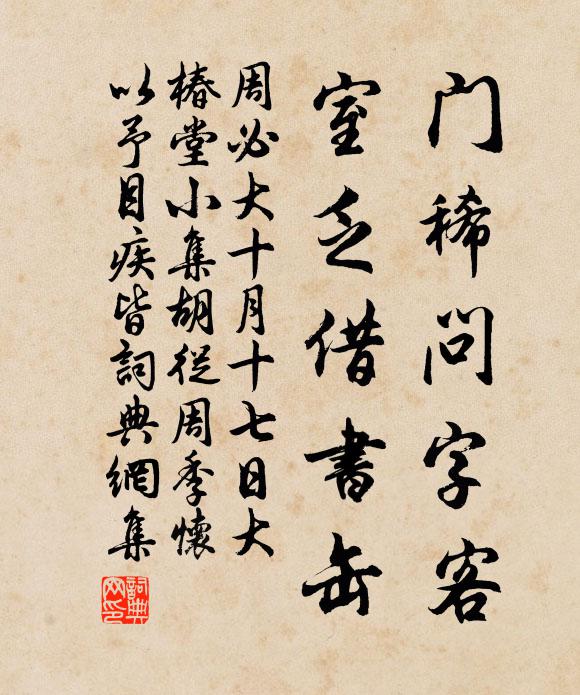 门稀问字客
室乏借書缶
周必大十月十七日大
椿堂小集胡從周季懷
以予目疾皆詞典網集
詞典网印